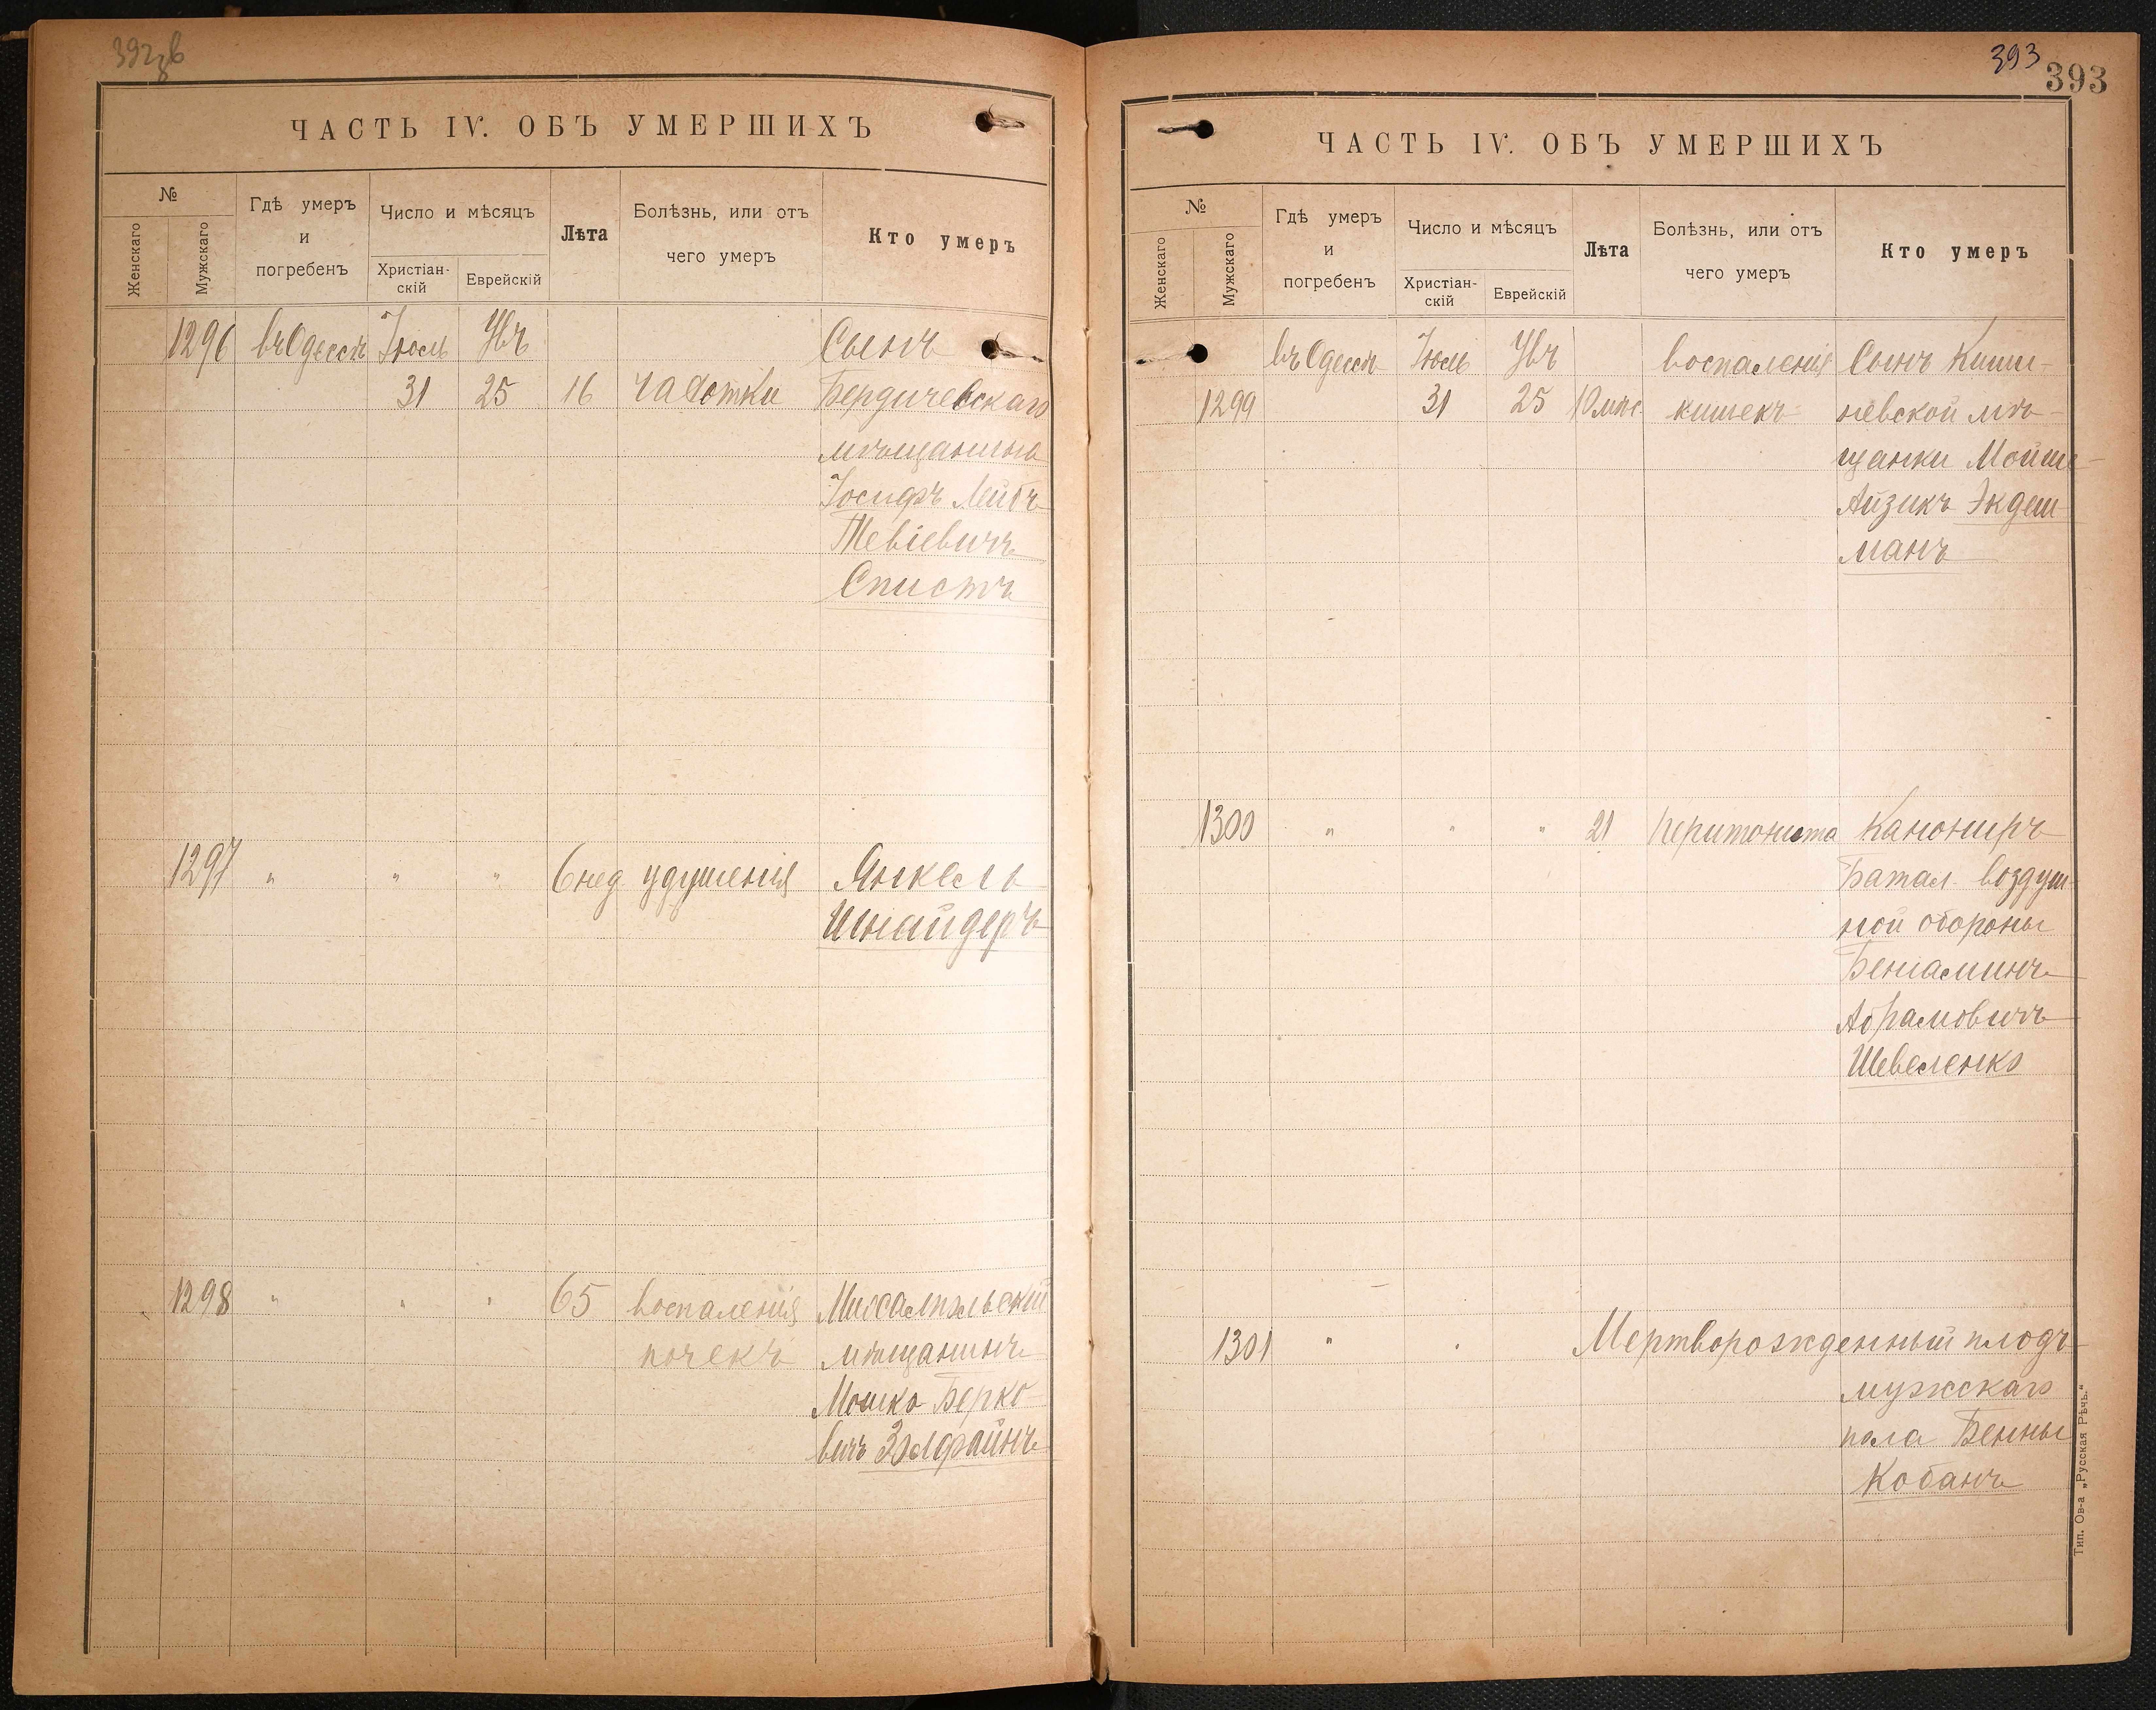 ЧАСТЬ IV. ОБЪ УМЕРШИХЪ
№
Женскаго
Мужскаго
Гдѣ умеръ
и
погребенъ
Число и мѣсяцъ
Христіан-
скій
Еврейскій
Лѣта
Болѣзнь, или отъ
чего умеръ
Кто умеръ
1296 въ Одессѣ Іюль Увъ Сынъ
31 25 16 чахотки Бердичевскаго
мѣщанина
Іосифъ Лейбъ
Тевіевичъ
Спистъ
1297 " " " 6 нед. удушенія Янкель
Шнайдеръ
1298 " " " 65 воспаленія
почекъ мѣщанинъ
Мошко Берко-
вичъ Зэлфайнъ
393
393
ЧАСТЬ IV. ОБЪ УМЕРШИХЪ
№
Женскаго
Мужскаго
Гдѣ умеръ
и
погребенъ
Число и мѣсяцъ
Христіан-
скій
Еврейскій
Лѣта
Болѣзнь, или отъ
чего умеръ
Кто умеръ
въ Одессѣ Іюль Увъ воспаленія Сынъ Киши-
1299 31 25 10 мѣс. кишекъ невской мѣ-
щанки Мойше-
Айзикъ Экдеш-
манъ
1300 " " " 21 перитонита Канониръ
Батал. воздуш-
ной обороны
Беніаминъ
Абрамовичъ
Шевеленко
1301 " " Мертворожденный плодъ
мужскаго
пола Бенны
Кобанъ
Тип. Ов-а „Русская Рѣчь.“